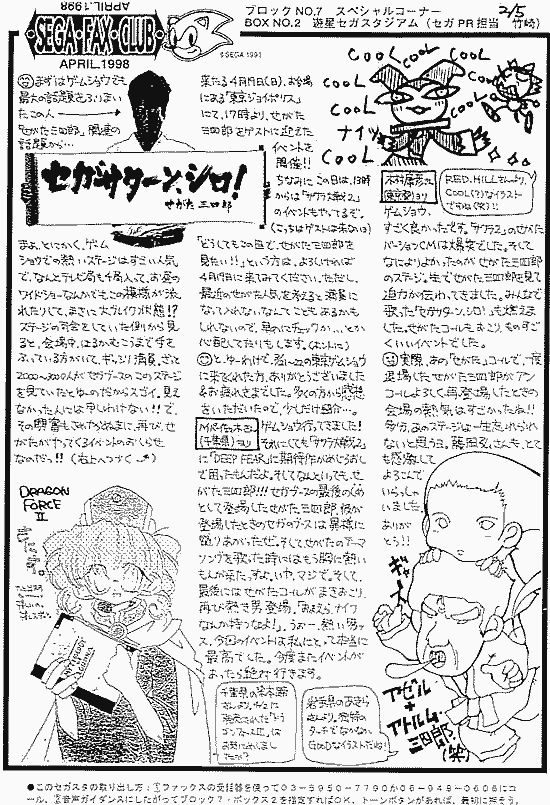 SEGA・FAX・CLUB
APRIL.1998
APRIL.1998
ブロックNO.7 スペシャルコーナー
BOX NO.2 遊星セガスタジアム(セガPR担当 竹崎)
2/5
©SEGA 1991
まずはゲームショウでも
最大の話題をふりまい
たこの人
「せがた三四郎」関連の
話題から…
セガサターン、シロ!
せがた三四郎
まぁ、とにかく、ゲーム
ショウでの熱いステージはすごい人気
で、なんとテレビ局も
ワイドショーなんかでもこの模様が流
れたりして、まさに大ブレイク状態!?
ステージの司会をしていた側から見
ると、会場中、はるかむこうまで手を
ふっている方がいて、ギッシリ満員。ざっと
2000〜3000人がセガブースのこのステージ
を見ていたとゆーのだからスゴイ。見え
なかった人には申しわけない!!で、
その興奮もさめやらぬままに、再び、せ
がたがやってくるイベントのおしらせ
なのだっ!!(右上へつづく)
来たる4月19日(日)、お台場
にある「東京ジョイポリス」
にて、17時より、せがた
三四郎をゲストに迎えた
イベントを
開催!!
ちなみにこの日は、13時
からは「サクラ大戦2」
のイベントもやってるぞ。
(こっちはゲストは来ないヨ)
「どうしてもこの目で、せがた三四郎を
見たい!!」という方は、よろしければ
4月19日に来てみてください。ただし、
最近のせがた人気を考えると満員に
なって入れない、なんてこともあるかも
しれないので、早めにチェックか…とか
心配してたりもします。(ホントに)
と、ゆーわけで、
に来てくれた方、ありがとうございました
&お疲れさまでした。多くの方から感想
をいただいたので、少しだけ紹介…。
(千葉県)ヨリ
ゲームショウ行ってきました!
それにしても「サクラ大戦2」
に「DEEP FEAR」に期待作がめじろおし
で困ったもんだよ。そしてなんといっても、せ
がた三四郎!!! セガブースの最後の〆め
として登場したせがた三四郎様が
登場したときのセガのブースは異様に
盛りあがった。そして、せがたのテーマ
ソングを歌った時にはもう胸に熱い
もんが来た。すよ。いや、マジで。そして、
最後にはせがたコールがまきおこり、
再び熱き男登場。「おまえら、ナイフ
なんか持つなよ!」うおー、熱い男ッ
ス。今回のイベントは私にとって本当に
最高でした。今度またイベントが
あったら絶対行きます。
COOL
COOL
COOL
COOL
COOL
COOL
ナイッ
(東京都)ヨリ
RED.HILLさんより。
COOL(?)なイラスト
ですねぇ(笑)!!
ゲームショウ、
すごく良かったです。「サクラ2」のせがた
バージョンCMは爆笑でした。そして
なによりよかったのがせがた三四郎
のステージ。生でせがた三四郎を見て
迫力が伝わってきました。みんなで
歌った「セガサターン、シロ!」も燃えま
した。せがたコールもおこり、ものすご
くいいイベントでした。
実際、あの「せがた」コールで、一度
退場したせがた三四郎がアン
コールよろしく、再登場したときの
会場の熱気はすごかったね!!
多分、あのステージは一生忘れられ
ないと思うヨ。藤岡弘さんも、とて
も感激して
よろこんで
いらっしゃ
いました。
ありが
とう!!
DRAGON
FORCE
II
ギャー
アゼル
+
アトルム
三四郎
(笑)
岩手県のあきら
さんより。独特の
タッチでなかなか
GooDなイラストだね!
●このセガスタの取り出し方:①ファックスの受話器を使って03-5950-7790か06-948-0606にコ
ール。②音声ガイダンスにしたがってブロック7・ボックス2を指定すればOK。トーンボタンがあれば、最初に押そう。